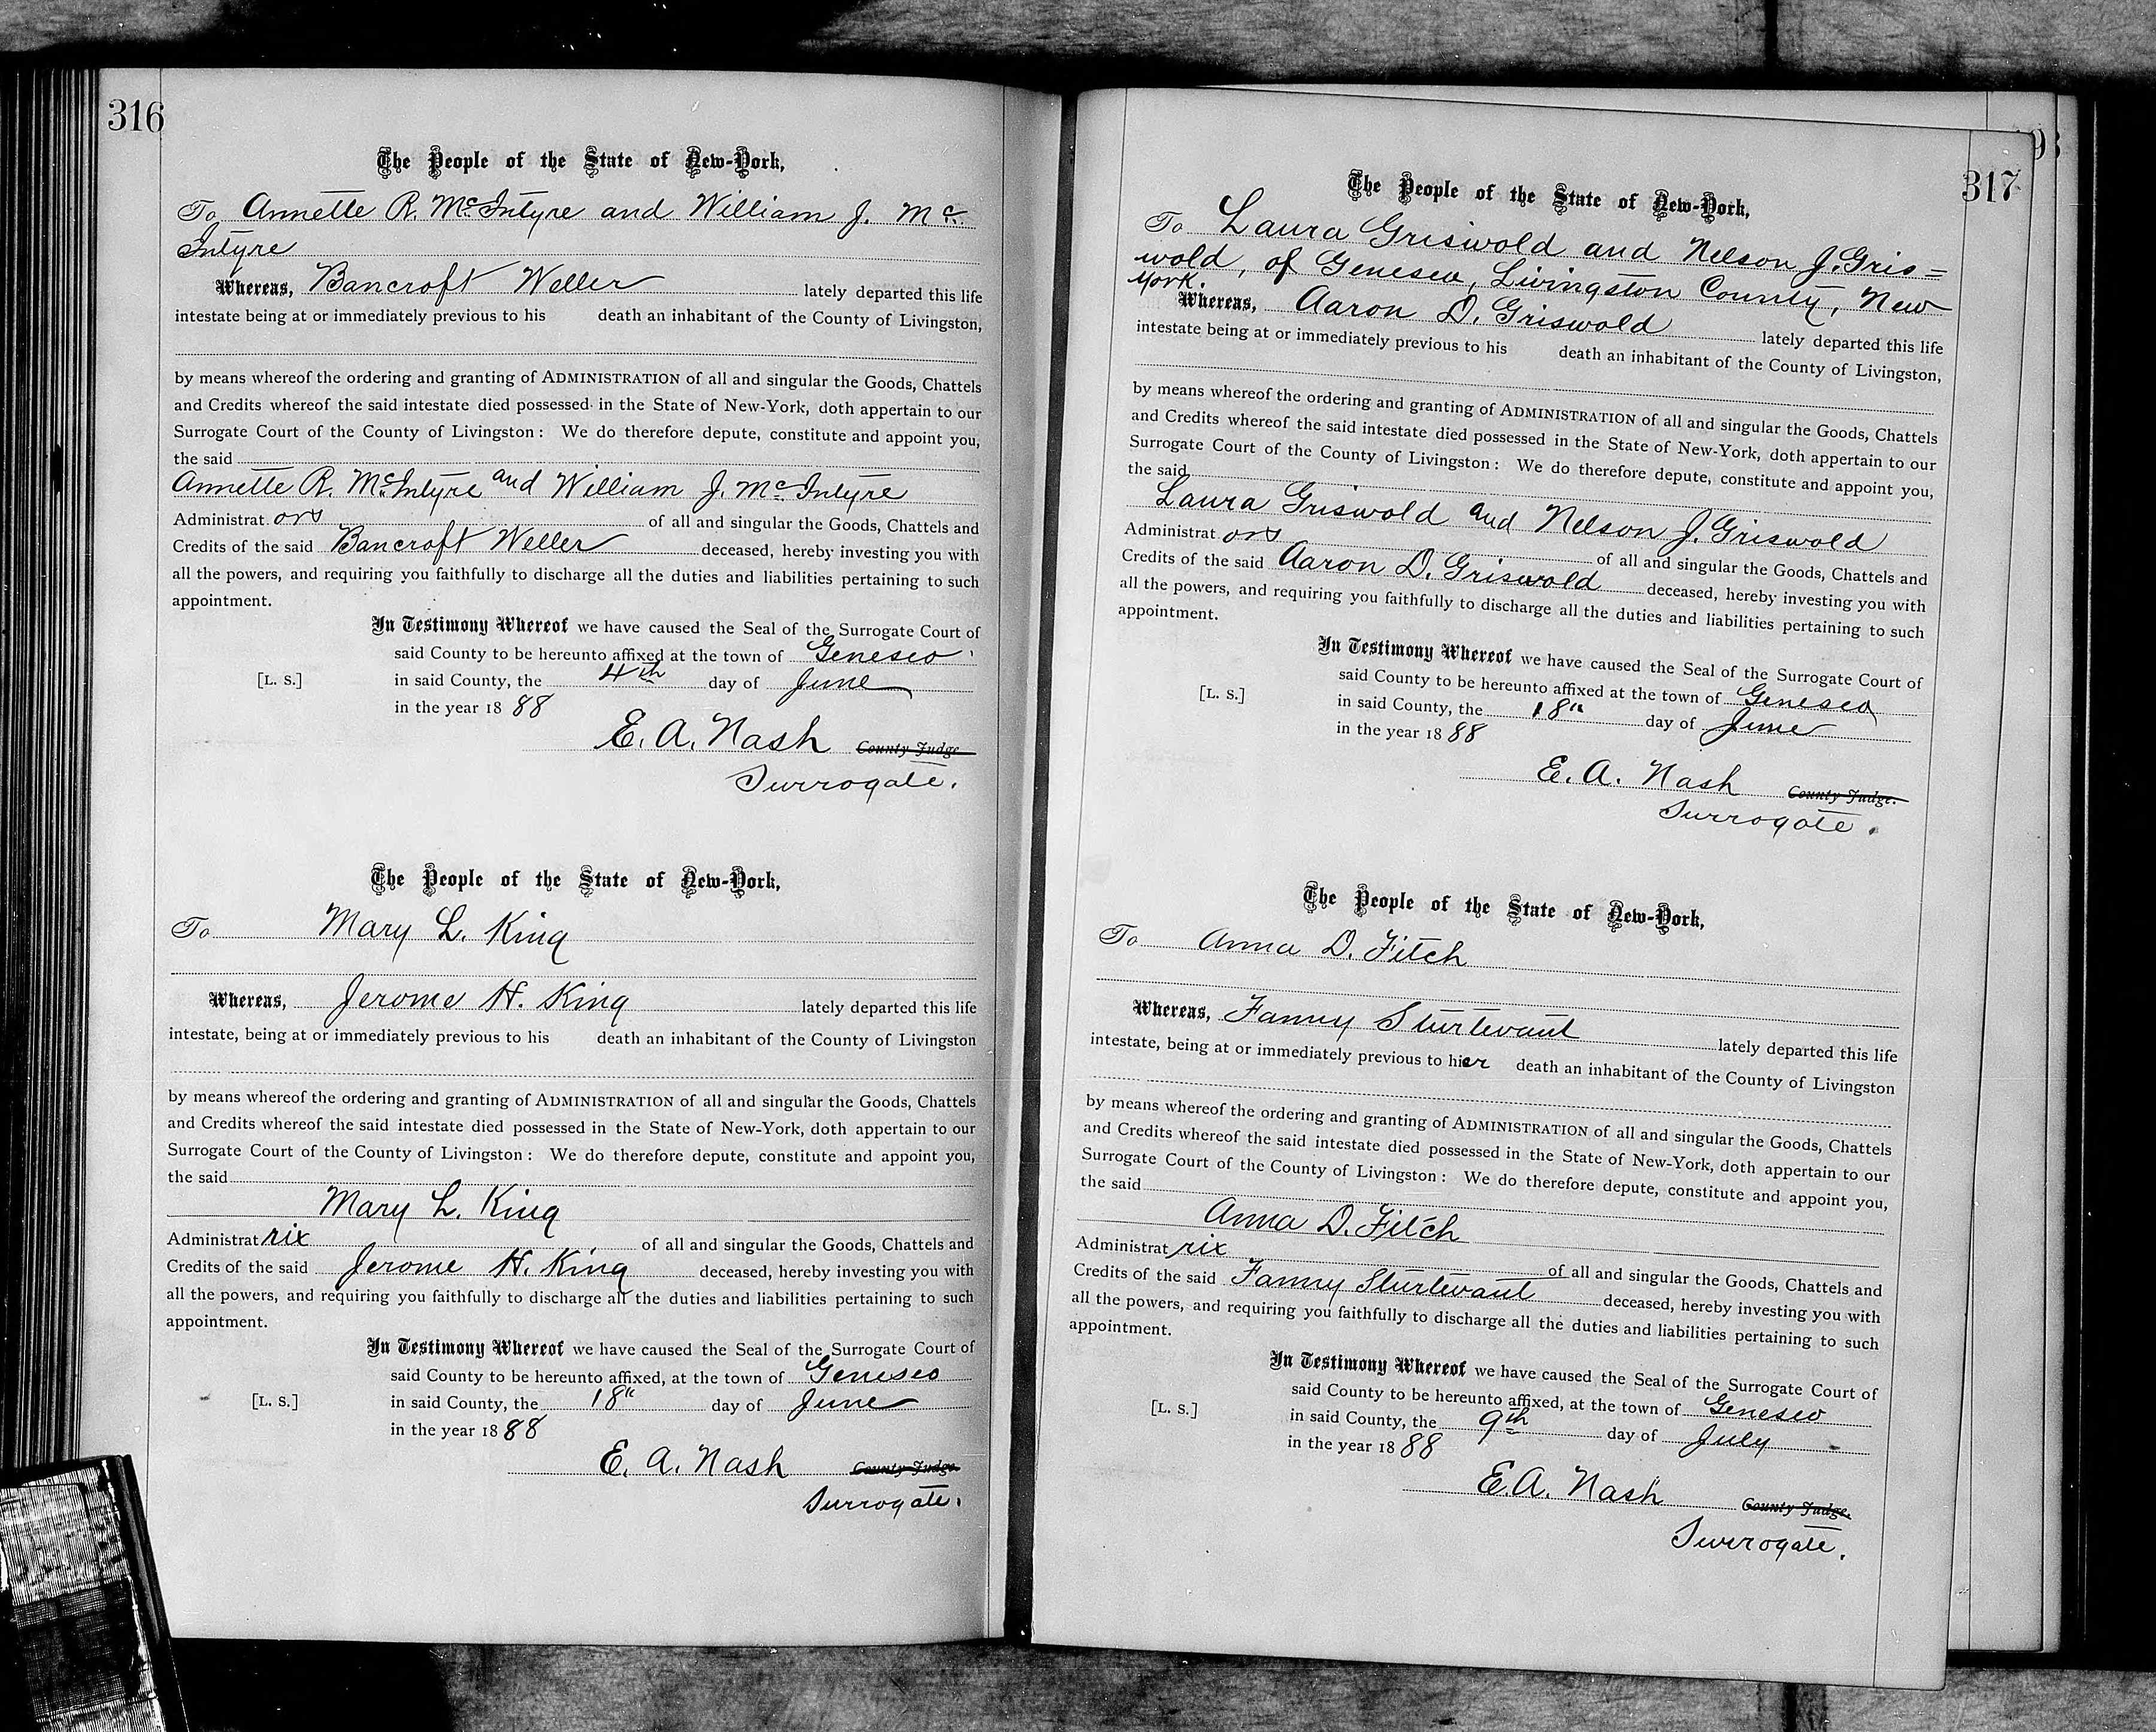 316
The People of the State of New-York,
To Annette R. McIntyre and William J. Mc
Intyre
Whereas, Bancroft Weller lately departed this life
intestate being at or immediately previous to his death an inhabitant of the County of Livingston,
by means whereof the ordering and granting of ADMINISTRATION of all and singular the Goods, Chattels
and Credits whereof the said intestate died possessed in the State of New-York, doth appertain to our
Surrogate Court of the County of Livingston: We do therefore depute, constitute and appoint you,
the said
Annette R. McIntyre and William J. McIntyre
Administrat ors of all and singular the Goods, Chattels and
Credits of the said Bancroft Weller deceased, hereby investing you with
all the powers, and requiring you faithfully to discharge all the duties and liabilities pertaining to such
appointment.
In Testimony Whereof we have caused the Seal of the Surrogate Court of
said County to be hereunto affixed at the town of Geneseo
[L. S.] in said County, the 4th day of June
in the year 18 88
E. A. Nash County Judge
Surrogate.
The People of the State of New-York,
To Mary L. King
Whereas, Jerome H. King lately departed this life
intestate, being at or immediately previous to his death an inhabitant of the County of Livingston
by means whereof the ordering and granting of ADMINISTRATION of all and singular the Goods, Chattels
and Credits whereof the said intestate died possessed in the State of New-York, doth appertain to our
Surrogate Court of the County of Livingston: We do therefore depute, constitute and appoint you,
the said
Mary L. King
Administrat rix of all and singular the Goods, Chattels and
Credits of the said Jerome H. King deceased, hereby investing you with
all the powers, and requiring you faithfully to discharge all the duties and liabilities pertaining to such
appointment.
In Testimony Whereof we have caused the Seal of the Surrogate Court of
said County to be hereunto affixed, at the town of Geneseo
[L. S.] in said County, the 18" day of June
in the year 18 88
E. A. Nash County Judge.
Surrogate.
317
The People of the State of New-York,
To Laura Griswold and Nelson J. Gris=
wold, of Geneseo, Livingston County, New
York.
Whereas, Aaron D. Griswold lately departed this life
intestate being at or immediately previous to his death an inhabitant of the County of Livingston,
by means whereof the ordering and granting of ADMINISTRATION of all and singular the Goods, Chattels
and Credits whereof the said intestate died possessed in the State of New-York, doth appertain to our
Surrogate Court of the County of Livingston: We do therefore depute, constitute and appoint you,
the said
Laura Griswold and Nelson J. Griswold
Administrat ors of all and singular the Goods, Chattels and
Credits of the said Aaron D. Griswold deceased, hereby investing you with
all the powers, and requiring you faithfully to discharge all the duties and liabilities pertaining to such
appointment.
In Testimony Whereof we have caused the Seal of the Surrogate Court of
said County to be hereunto affixed at the town of Geneseo
[L. S.] in said County, the 18" day of June
in the year 18 88
E. A. Nash County Judge.
Surrogate.
The People of the State of New-York,
To Anna D. Fitch
Whereas, Fanny Sturtevant lately departed this life
intestate, being at or immediately previous to her death an inhabitant of the County of Livingston
by means whereof the ordering and granting of ADMINISTRATION of all and singular the Goods, Chattels
and Credits whereof the said intestate died possessed in the State of New-York, doth appertain to our
Surrogate Court of the County of Livingston: We do therefore depute, constitute and appoint you,
the said
Anna D. Fitch
Administrat rix of all and singular the Goods, Chattels and
Credits of the said Fanny Sturtevant deceased, hereby investing you with
all the powers, and requiring you faithfully to discharge all the duties and liabilities pertaining to such
appointment.
In Testimony Whereof we have caused the Seal of the Surrogate Court of
said County to be hereunto affixed, at the town of Geneseo
[L. S.] in said County, the 9th day of July
in the year 18 88
E. A. Nash County Judge.
Surrogate.